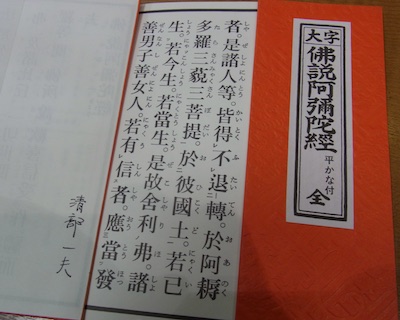 大字
佛說阿彌陀經
平かな付
全
者。是諸人等。皆得不退轉。於阿耨
多羅三藐三菩提。於彼國土。若已
生。若今生。若當生。是故舍利弗。諸
善男子善女人。若有信者。應當發
清部一夫